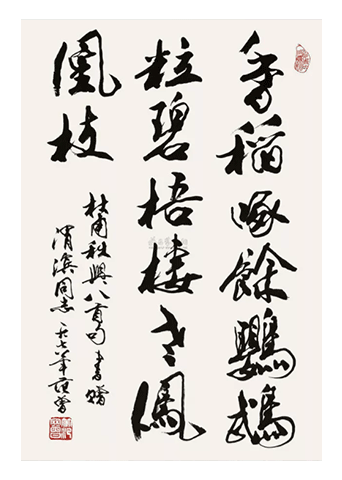 香稻啄餘鸚鵡
粒碧梧棲老鳳
凰枝
杜甫秋興八首句書贈
渭濱同志 年范曾